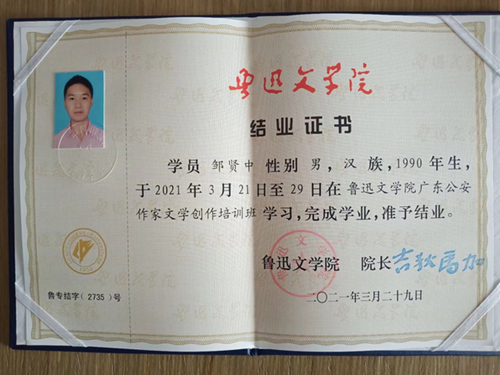 鲁迅文学院
结业证书
学员 邹贤中 性别 男，汉 族，1990 年生，
于 2021 年 3 月 21 日至 29 日在 鲁迅文学院广东公安
作家文学创作培训班 学习，完成学业，准予结业。
鲁迅文学院 院长 吉狄马加
二〇二一年三月二十九日
鲁专结字（2735）号